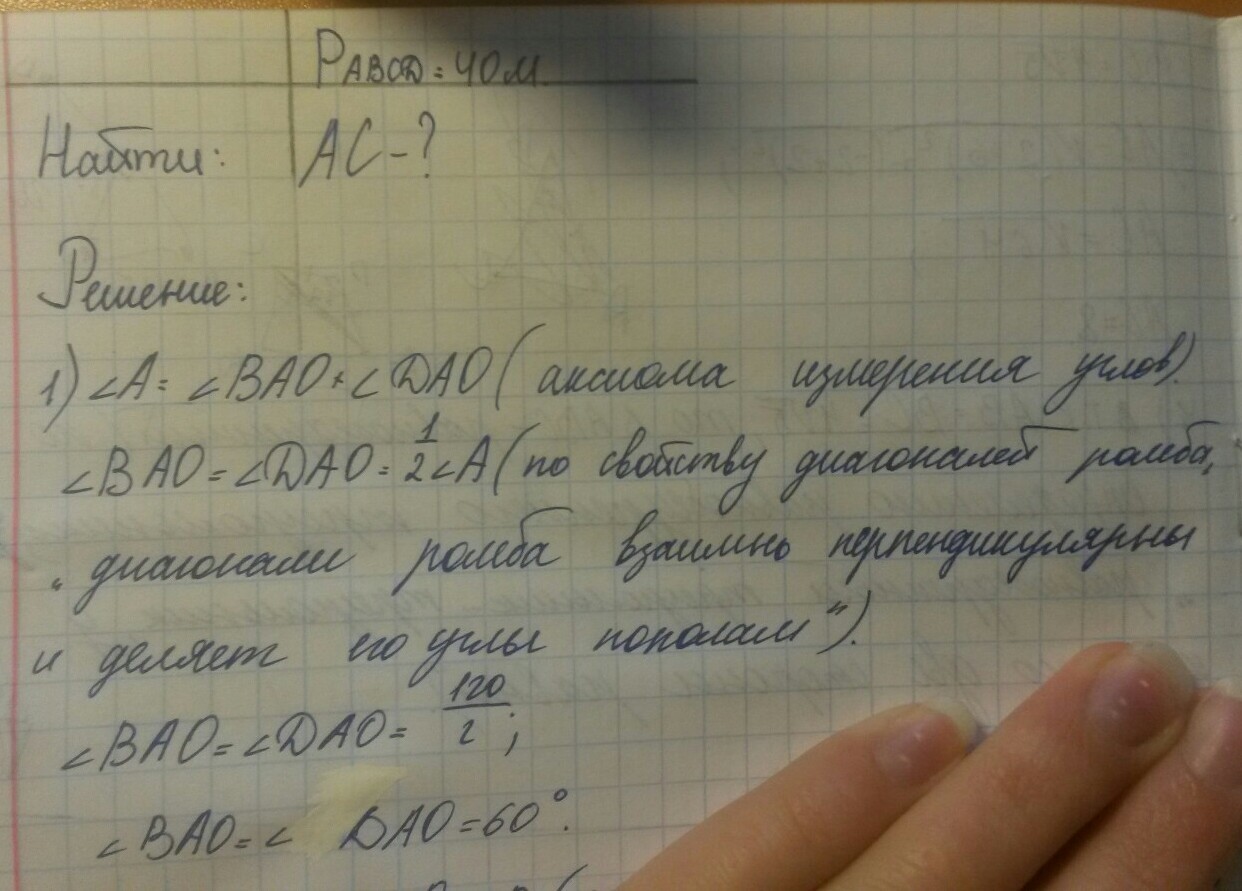 PABCD = 40м.
Найти: AC - ?
Решение:
1) ∠A = ∠BAO + ∠DAO (аксиома измерения углов).
∠BAO = ∠DAO = 1/2 ∠A (по свойству диагоналей ромба,
„диагонали ромба взаимно перпендикулярны
и делят его углы пополам").
∠BAO = ∠DAO = 120/2 ;
∠BAO = ∠DAO = 60°.